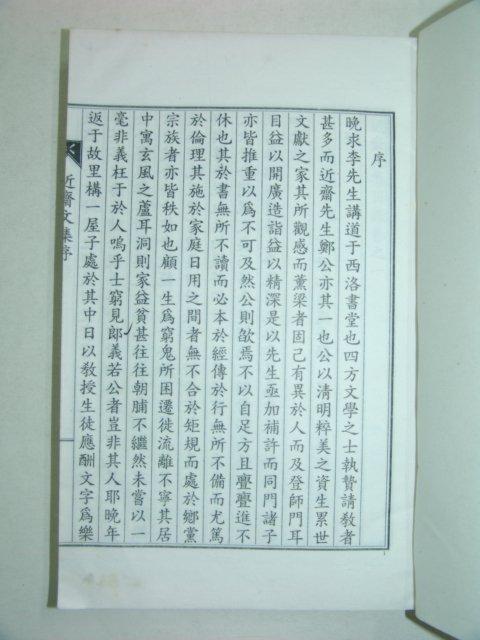 序
晩求李先生講道于西洛書堂也四方文學之士執贄請敎者
甚多而近齋先生鄭公亦其一也公以清明粹美之資生累世
文獻之家其所觀感而薰梁者固已有異於人而及登師門耳
目益以開廣造詣益以精深是以先生亟加補許而同門諸子
亦皆推重以爲不可及然公則欿焉不以自足方且亹亹進不
休也其於書無所不讀而必本於經傳於行無所不備而尤篤
於倫理其施於家庭日用之間者無不合於矩規而處於鄉黨
宗族者亦皆秩如也顧一生爲窮鬼所困遷徙流離不寧其居
中寓玄風之蘆耳洞則家益貧甚往往朝脯不繼然未嘗以一
毫非義枉于於人嗚乎士窮見郞義若公者豈非其人耶晩年
返于故里構一屋子處於其中日以敎授生徒應酬文字爲樂
近齋文集序